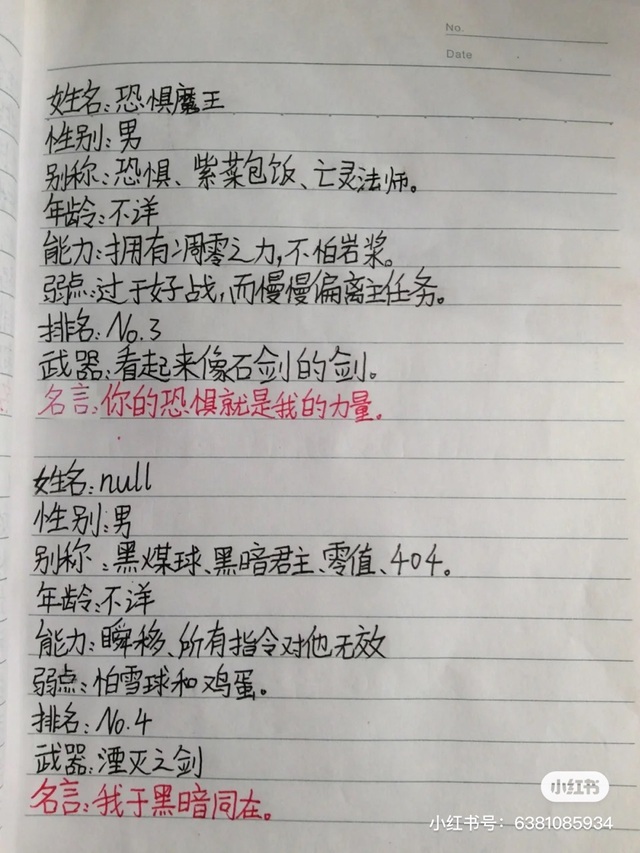 No.
Date
姓名:恐惧魔王
性别:男
别称:恐惧、紫菜包饭、亡灵法师。
年龄:不洋
能力:拥有凋零之力,不怕岩浆。
弱点:过于好战,而慢慢偏离主任务。
排名:No.3
武器:看起来像石剑的剑。
名言:你的恐惧就是我的力量。
姓名:null
性别:男
别称:黑煤球、黑暗君主、零值、404。
年龄:不洋
能力:瞬移、所有指令对他无效
弱点:怕雪球和鸡蛋。
排名:No.4
武器:湮灭之剑
名言:我于黑暗同在。
小红书
小红书号:6381085934